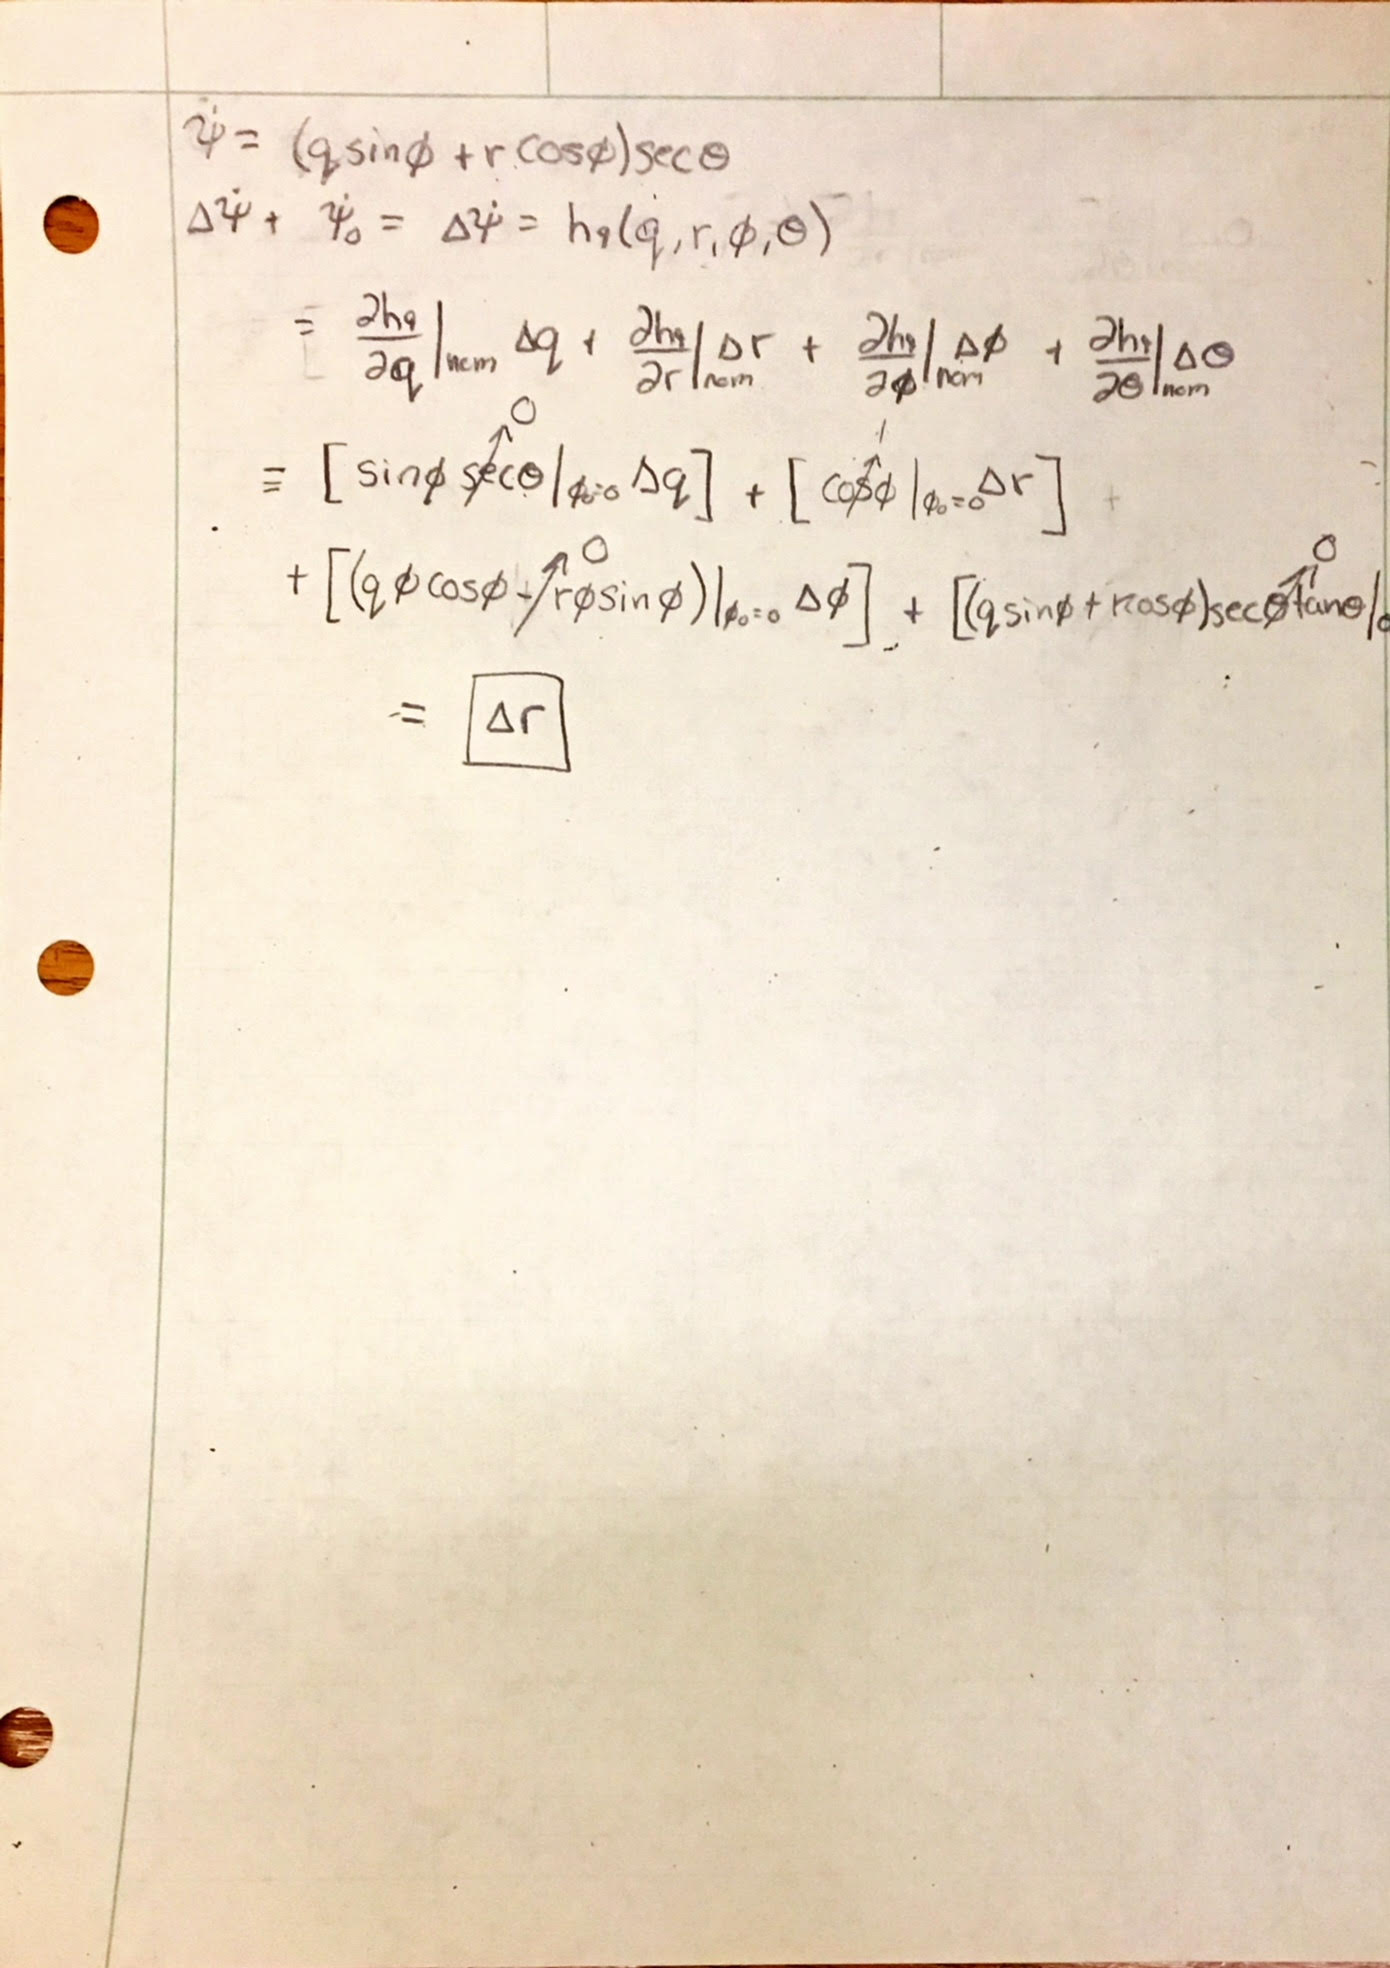 ψ̇ = (q sinϕ + r cosϕ) secθ
Δψ̇ + ψ̇₀ = Δψ̇ = h₉(q, r, ϕ, θ)
= ∂h₉/∂q |nom Δq + ∂h₉/∂r |nom Δr + ∂h₉/∂ϕ |nom Δϕ + ∂h₉/∂θ |nom Δθ
= [sinϕ secθ|ϕ₀=0 Δq] 0 + [cosϕ 1 |ϕ₀=0 Δr]
+ [(qϕcosϕ - rϕsinϕ) 0 |ϕ₀=0 Δϕ] + [(q sinϕ + r cosϕ) secθ tanθ 0 |0
= Δr